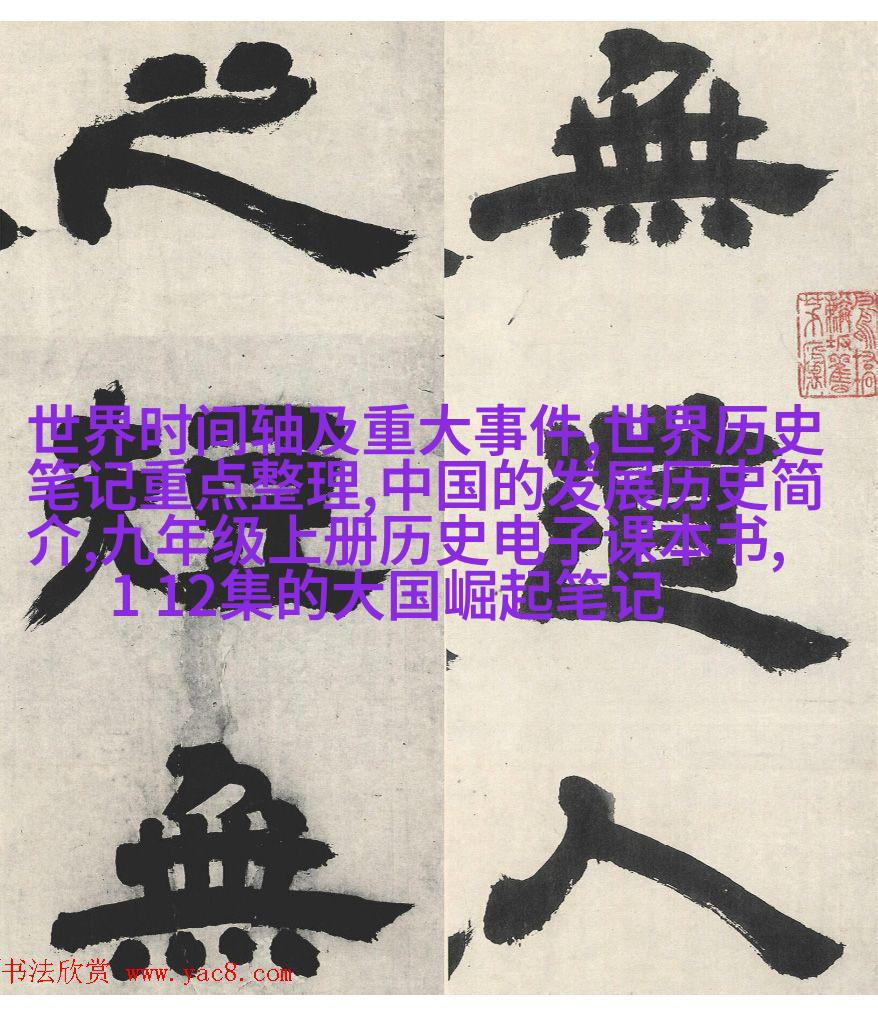 無
人
之
世界时间轴及重大事件,世界历史
笔记重点整理,中国的发展历史简
介,九年级上册历史电子课本书,
1 12集的大国崛起笔记
無
书法欣赏 www.yac8.com